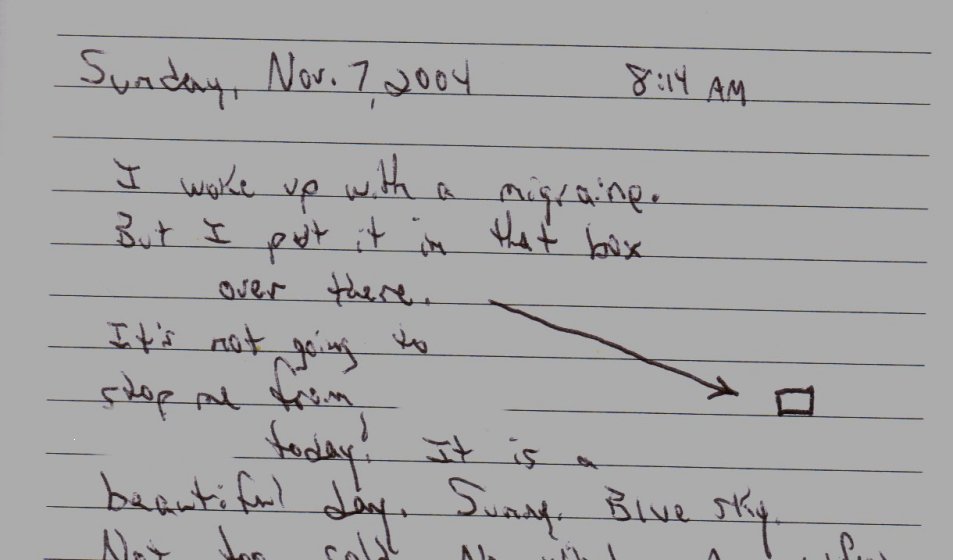 Sunday, Nov. 7, 2004 8:14 AM
I woke up with a migraine.
But I put it in that box
over there.
It's not going to
stop me from
today! It is a
beautiful day. Sunny. Blue sky.
Not too cold. No